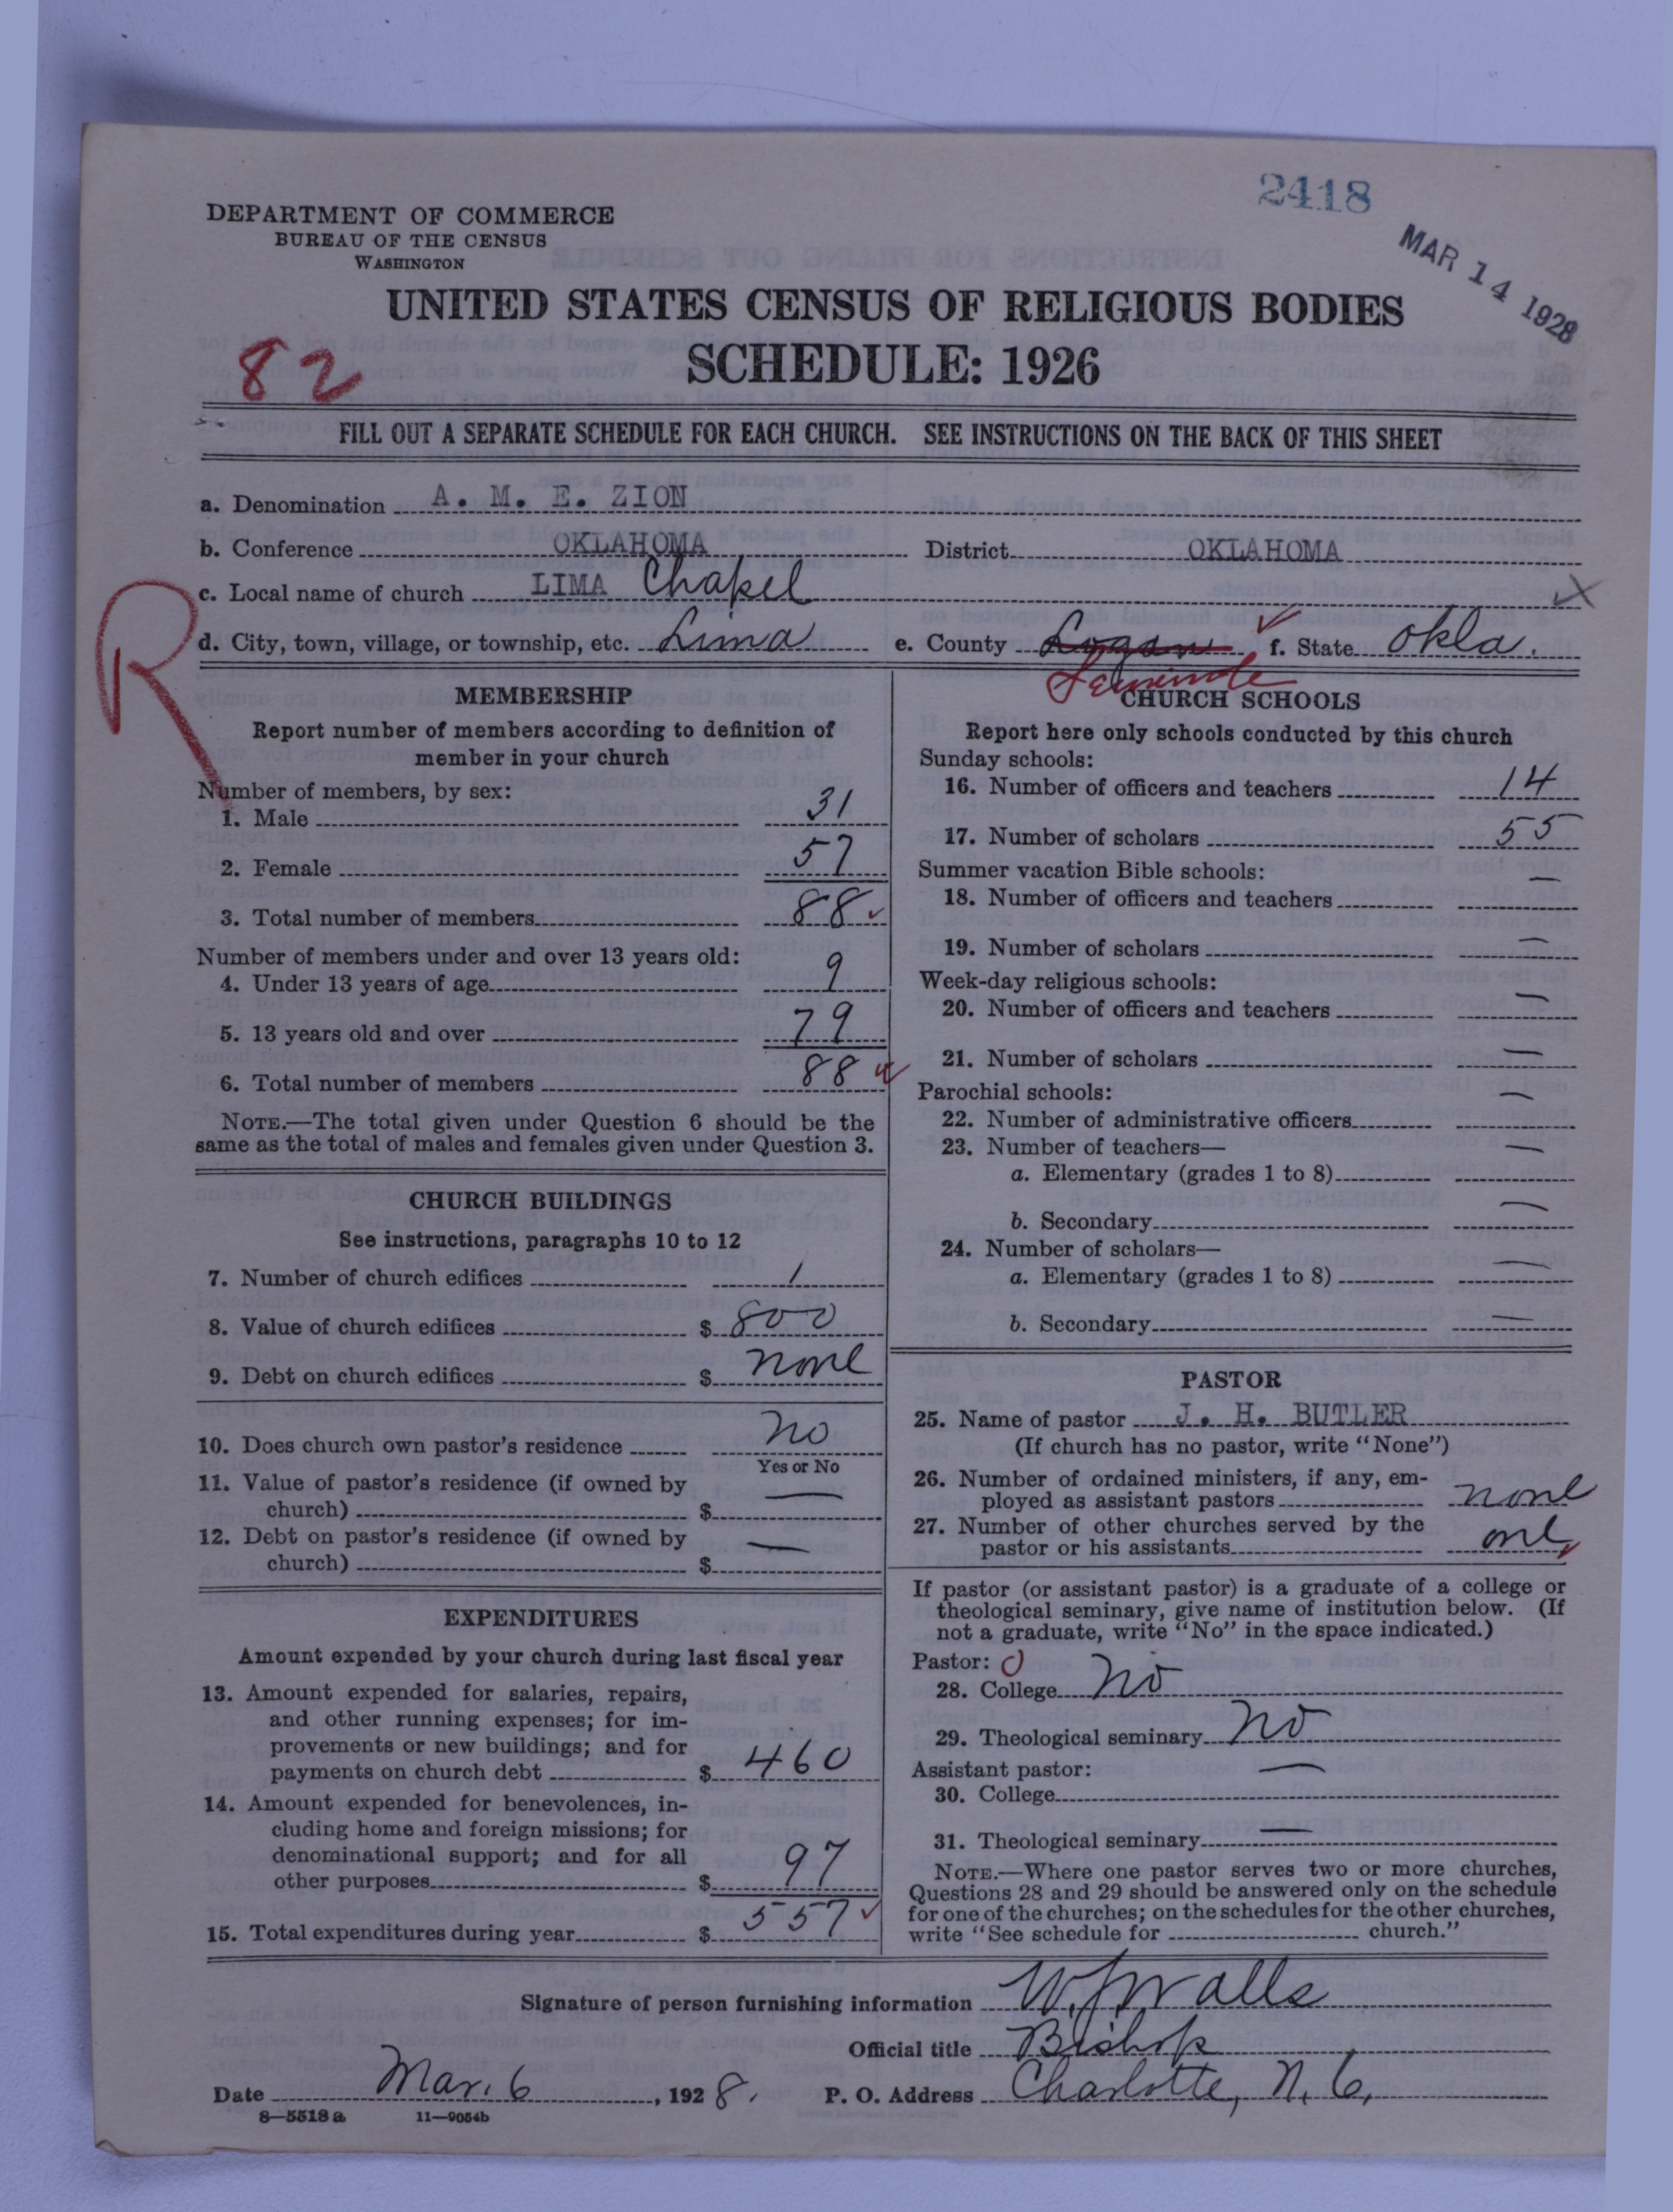 2418
MAR 14 1928
DEPARTMENT OF COMMERCE
BUREAU OF THE CENSUS
WASHINGTON
UNITED STATES CENSUS OF RELIGIOUS BODIES
SCHEDULE: 1926
82
FILL OUT A SEPARATE SCHEDULE FOR EACH CHURCH. SEE INSTRUCTIONS ON THE BACK OF THIS SHEET
a. Denomination A. M. E. ZION
b. Conference OKLAHOMA District OKLAHOMA
c. Local name of church LIMA Chapel
R
d. City, town, village, or township, etc. Lima e. County Logan f. State Okla.
Seminole
MEMBERSHIP
Report number of members according to definition of
member in your church
Number of members, by sex:
1. Male 31
2. Female 57
3. Total number of members 88
Number of members under and over 13 years old:
4. Under 13 years of age 9
5. 13 years old and over 79
6. Total number of members 88
NOTE.—The total given under Question 6 should be the
same as the total of males and females given under Question 3.
CHURCH BUILDINGS
See instructions, paragraphs 10 to 12
7. Number of church edifices 1
8. Value of church edifices $ 800
9. Debt on church edifices $ none
10. Does church own pastor's residence no
Yes or No
11. Value of pastor's residence (if owned by
church) $ —
12. Debt on pastor's residence (if owned by
church) $ —
EXPENDITURES
Amount expended by your church during last fiscal year
13. Amount expended for salaries, repairs,
and other running expenses; for im-
provements or new buildings; and for
payments on church debt $ 460
14. Amount expended for benevolences, in-
cluding home and foreign missions; for
denominational support; and for all
other purposes $ 97
15. Total expenditures during year $ 557
CHURCH SCHOOLS
Report here only schools conducted by this church
Sunday schools:
16. Number of officers and teachers 14
17. Number of scholars 55
Summer vacation Bible schools:
18. Number of officers and teachers —
19. Number of scholars —
Week-day religious schools:
20. Number of officers and teachers —
21. Number of scholars —
Parochial schools:
22. Number of administrative officers —
23. Number of teachers—
a. Elementary (grades 1 to 8) —
b. Secondary —
24. Number of scholars—
a. Elementary (grades 1 to 8) —
b. Secondary —
PASTOR
25. Name of pastor J. H. BUTLER
(If church has no pastor, write "None")
26. Number of ordained ministers, if any, em-
ployed as assistant pastors none
27. Number of other churches served by the
pastor or his assistants one
If pastor (or assistant pastor) is a graduate of a college or
theological seminary, give name of institution below. (If
not a graduate, write "No" in the space indicated.)
Pastor: 0
28. College No
29. Theological seminary No
Assistant pastor:
30. College —
31. Theological seminary —
NOTE.—Where one pastor serves two or more churches,
Questions 28 and 29 should be answered only on the schedule
for one of the churches; on the schedules for the other churches,
write "See schedule for church."
Signature of person furnishing information W. J. Walls
Official title Bishop
Date Mar. 6, 1928. P. O. Address Charlotte, N. C.
8—5518 a 11—9054b